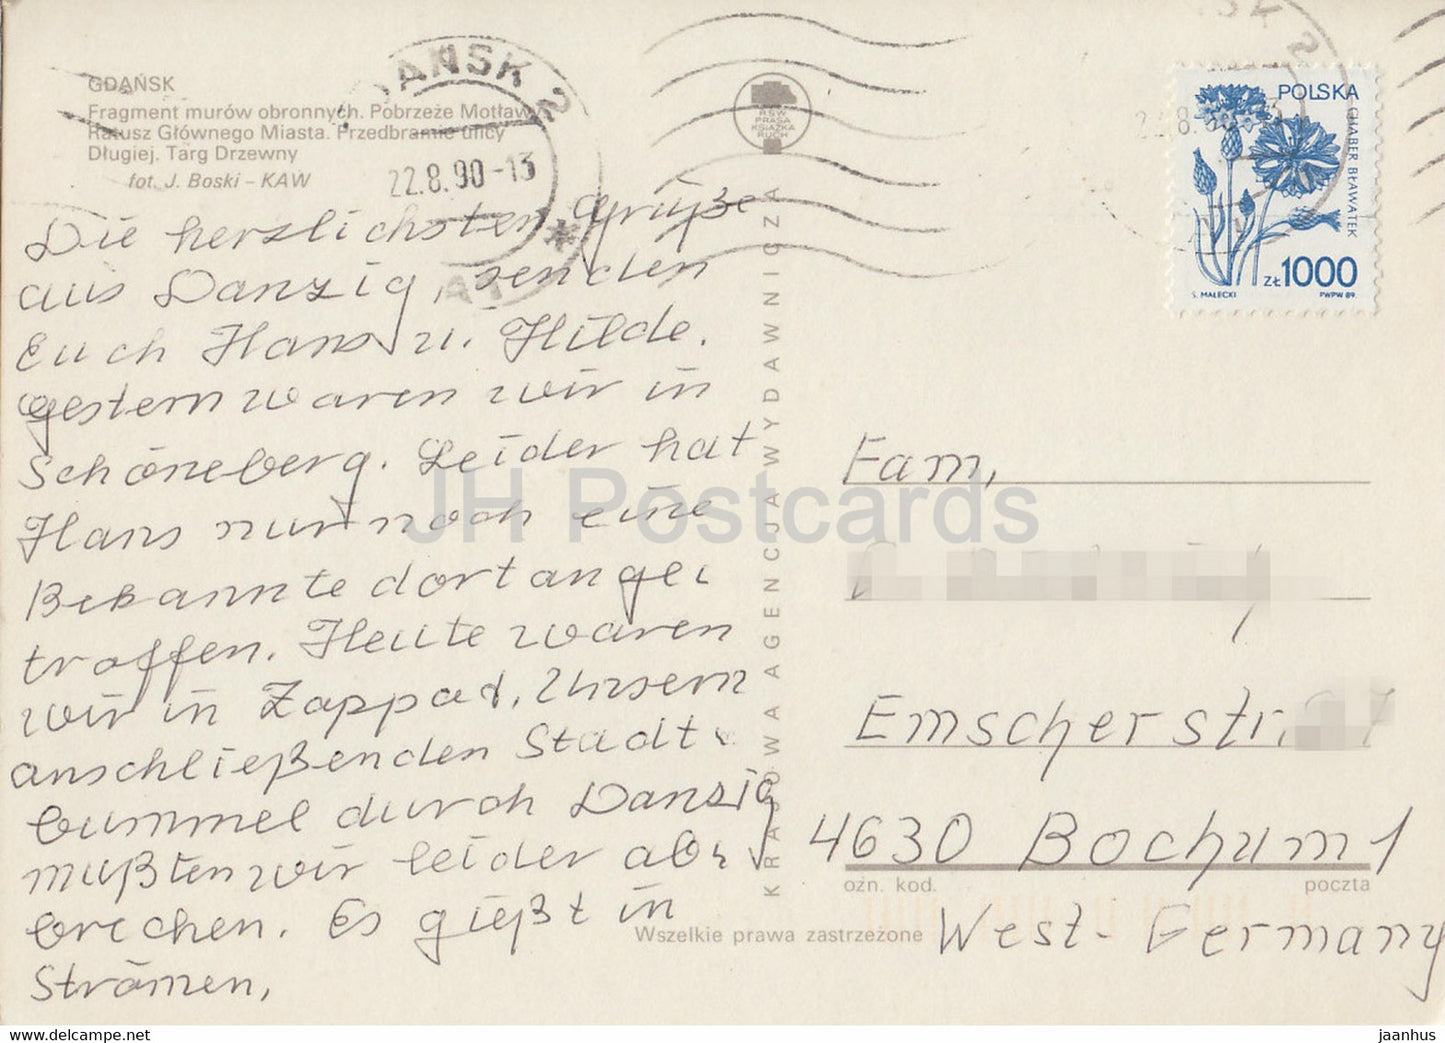 GDAŃSK
Fragment murów obronnych. Pobrzeże Motławy
Ratusz Głównego Miasta. Przedbramie ulicy
Długiej. Targ Drzewny
fot. J. Boski – KAW
GDAŃSK 2
22.8.90-13
RSW
PRASA
KSIĄŻKA
RUCH
POLSKA
CHABER BŁAWATEK
ZŁ 1000
S. MAŁECKI PWPW 89.
Die herzlichsten Grüße
aus Danzig, senden
Euch Hans u. Hilde.
Gestern waren wir in
Schöneberg. Leider hat
Hans nur noch eine
Bekannte dort ange-
troffen. Heute waren
wir in Zappot. Unsern
anschließenden Stadt-
bummel durch Danzig
mußten wir leider ab-
brechen. Es gießt in
Strömen.
KRAJOWA AGENCJA WYDAWNICZA
Fam.
Emscherstr.
4630 Bochum 1
ozn. kod. poczta
West-Germany
Wszelkie prawa zastrzeżone
JH Postcards
https://jhpostcard.com jaanhus